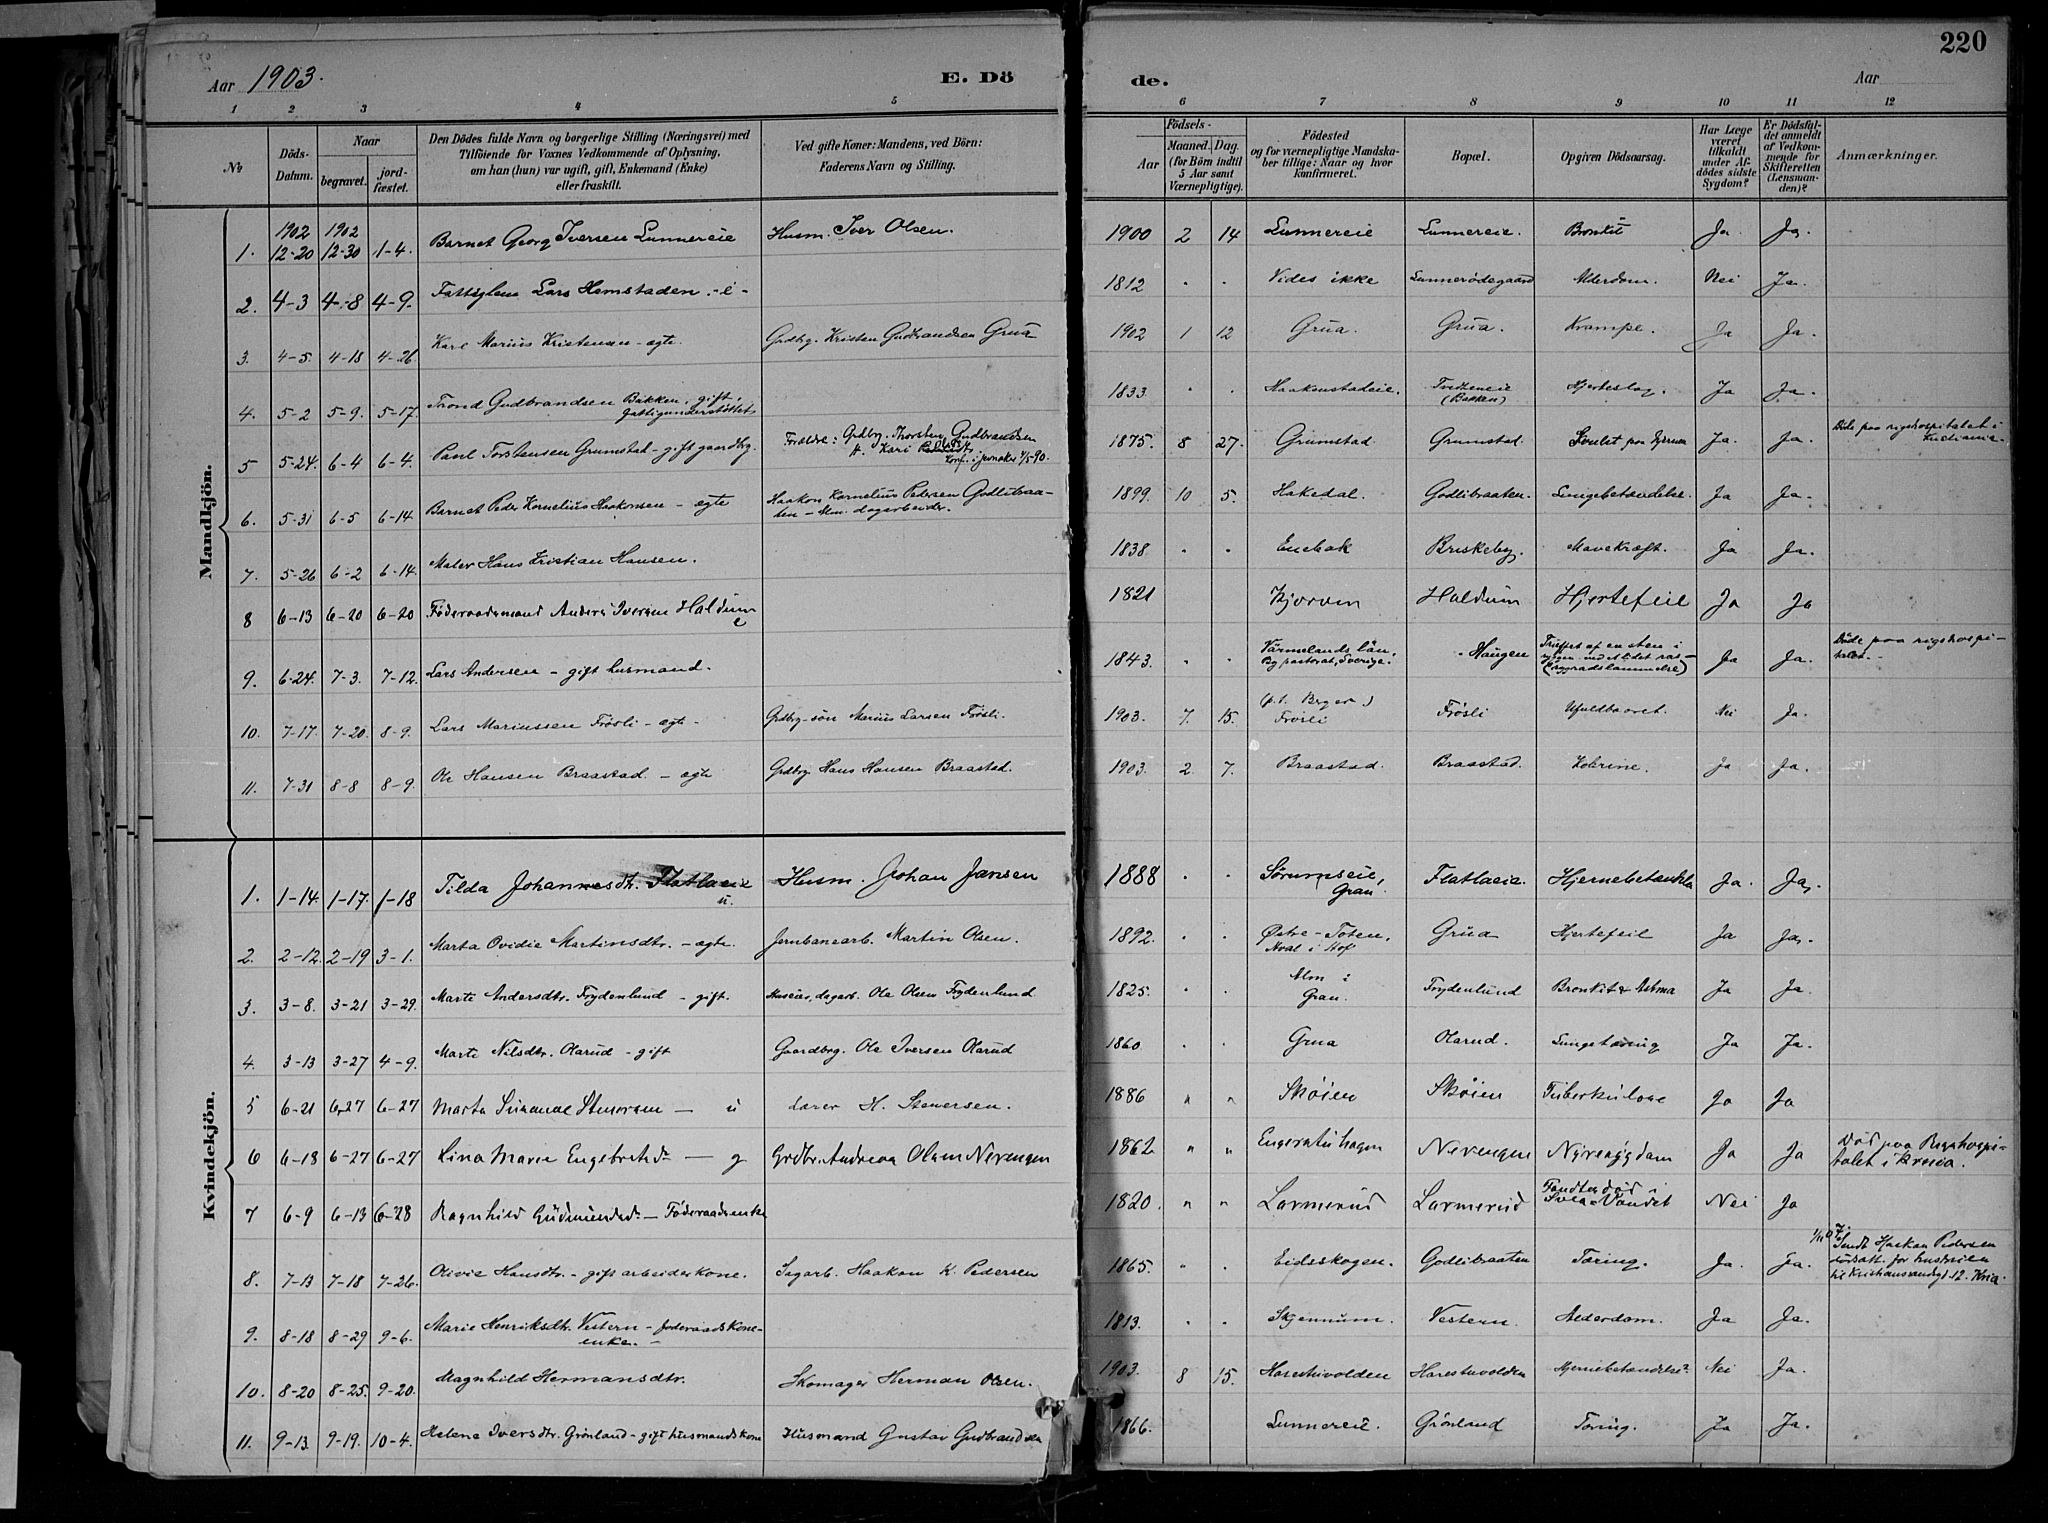 220
Aar 1903.
E. Dö
de.
Aar
1 2 3 4 5
6 7 8 9 10 11 12
No
Döds-Datum.
Naar
begravet.
jord-fæstet.
Den Dödes fulde Navn og borgerlige Stilling (Næringsvei) med
Tilföiende for Voxnes Vedkommende af Oplysning,
om han (hun) var ugift, gift, Enkemand (Enke)
eller fraskilt.
Ved gifte Koner: Mandens, ved Börn:
Faderens Navn og Stilling.
Födsels-
Aar
Maaned. Dag.
(for Börn indtil
5 Aar samt
Værnepligtige).
Födested
og for værnepligtige Mandska-
ber tillige: Naar og hvor
konfirmeret.
Bopæl.
Opgiven Dödsaarsag.
Har Læge
været
tilkaldt
under Af-
dödes sidste
Sygdom?
Er Dödsfal-
det anmeldt
af Vedkom-
mende for
Skifteretten
(Lensman-
den)?
Anmærkninger.
Mandkjön.
1. 1902 12-20 1902 12-30 1-4. Barnet Georg Iversen Lunnereie Husm. Iver Olsen. 1900 2 14 Lunnereie Lunnereie. Bronkit Ja. Ja.
2. 4-3 4-8 4-9. Fattiglem Lars Hemstaden 1812 " " Vides ikke Lunnerødegaard Alderdom. Nei Ja.
3. 4-5. 4-18 4-26 Karl Marius Kristensen - ægte. Grdbrg. Kristen Gudbrandsen Grua 1902 1 12 Grua. Grua. Krampe. Ja Ja.
4. 5-2 5-9. 5-17. Trond Gudbrandsen Bakken, gift, fattigunderstøttet 1833. " " Haakenstadeie. (Bakken) Hjerteslag. Ja Ja.
5 5-24. 6-4 6-4. Paul Torstensen Grumstad - gift gaardbrg. Forældre: Grdbrg. Thorsten Gudbrandsen H. Kari Konf. i Jevnaker 1875. 8 27. Grumstad Grumstad Ja. Ja. Døde paa rigshospitalet i Kristiania.
6. 5-31 6-5 6-14 Barnet Peder Kornelius Haakonsen - ægte Haakon Kornelius Pedersen Godlibraa-
ten - dagarbeider. 1899. 10 5. Hakedal. Godlibraaten. Lungebetændelse. Ja Ja.
7. 5-26 6-2 6-14. Maler Hans Kristian Hansen. 1838 " " Enebak Briskeby. Mavekræft. Ja Ja.
8 6-13 6-20 6-20 Føderaadsmand Anders Iversen Haldum e 1821 Kjorven Haldum Hjertefeil Ja Ja
9. 6-24. 7-3. 7-12. Lars Andersen - gift husmand. 1843. " " Värmelands län, By pastorat, Sverige. Haugen Truffet af en sten i ryggen ved (rygradslammelse) Ja Ja. Døde paa rigshospi-
talet.
10. 7-17. 7-20. 8-9. Lars Mariussen Frøsli - ægte - Grdbrg-søn Marius Larsen Frøsli. 1903. 7. 15. Frøsli Frøsli Ufuldbaaret. Nei Ja.
11. 7-31 8-8 8-9. Ole Hansen Braastad. - ægte Grdbrg. Hans Hansen Braastad. 1903. 2. 7. Braastad. Braastad. Kolerine. Ja Ja.
Kvindekjön.
1. 1-14. 1-17. 1-18 Tilda Johannesdtr. Flatlaeie u. Husm. Johan Jansen 1888 " " Sørumseie, Gran. Flatlaeie. Hjernebetændelse Ja. Ja.
2. 2-12. 2-19 3-1. Marta Ovidie Martinsdtr. - ægte. Jernbanearb. Martin Olsen. 1892. " " Østre-Toten, Hoal i Hof Grua Hjertefeil Ja Ja.
3. 3-8. 3-21 3-29. Marte Andersdtr. Frydenlund - gift. Huseier, dagarb. Ole Olsen Frydenlund 1825. " " Alm i Gran. Frydenlund Bronkit & Astma Ja Ja.
4. 3-13 3-27 4-9. Marte Nilsdtr. Olarud - gift Gaardbrg. Ole Iversen Olarud 1860. " " Grua Olarud. Lungetæring Ja Ja.
5 6-21 6-27 6-27 Marta Susanne Stenersen - u Lærer H. Stenersen. 1886 " " Skøien Skøien Tuberkulose Ja Ja
6 6-18 6-27 6-27 Lina Marie Engebretsdr - g Grdbr. Andreas Olsen Nerengen 1862 " " Nerengen Nyresygdom Ja Ja Død paa Rigshospi-
talet i Kr.ia.
7 6-9 6-13 6-28 Ragnhild Gudmundsd. - Føderaadsenke 1820. " " Larmerud Larmerud Fandtes død i Svea-Vandet Nei Ja
8. 7-13 7-18 7-26. Olivie Hansdtr. - gift arbeiderkone. Sagarb. Haakon K. Pedersen 1865. " " Eidsskogen. Godlibraaten Tæring. Ja. Ja. Sendt Haakon Pedersen
dødsatt. for hustruen
til Kristiansandsgd. 12. Kria.
9. 8-18 8-29 9-6. Marie Henriksdtr. Vestern - føderaadskone-
enke. - 1813. " " Skjennum. Vestern. Alderdom. Ja Ja.
10. 8-20 8-25. 9-20. Magnhild Hermansdtr. Skomager Herman Olsen. 1903. 8 15. Harestuvolden Harestuvolden Hjernebetændelse? Nei Ja.
11. 9-13. 9-19. 10-4. Helene Iversdtr. Grønland - gift husmandskone Husmand Gustav Gudbrandsen 1866. Lunnereie. Grønland Tæring. Ja Ja.